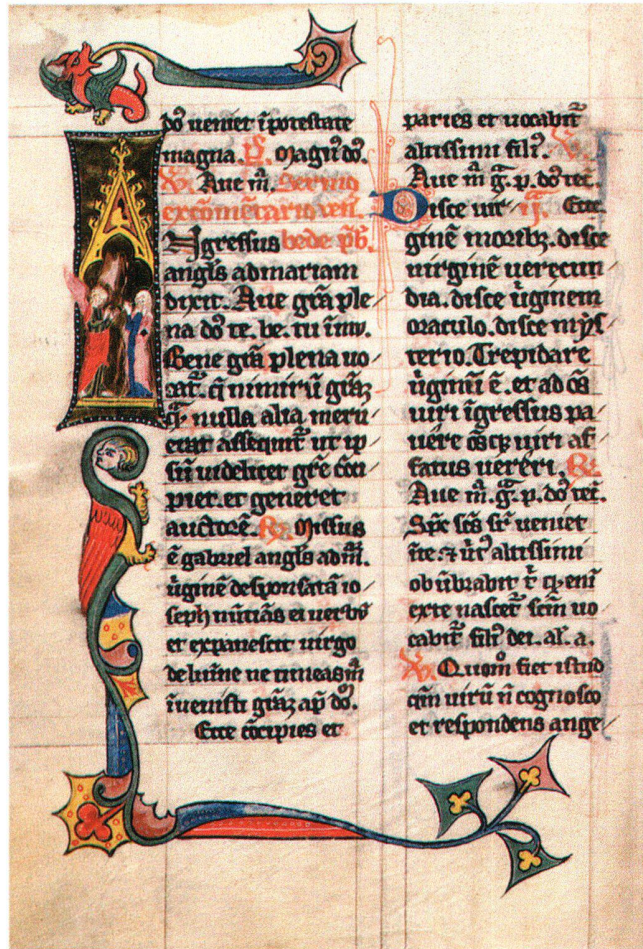 do᷒ ueniet ı̄ potestate
magna. P̷. Magn᷒ do᷒.
V̷. Aue m̄. Sermo
ex cōmētario uen̄.
Ngressus bede p̄b̄.
angl̄s ad mariam
dixit. Aue gr̄a ple
na do᷒ te. be. tu ī mu̅.
Bene gr̄a plena uo
cat᷒. q̄ nimirū gr̄az
nulla alia meru
erat assequit᷒ ut ip
sū uidelicet gr̄e con
pier. et generet
auctorē. R̷ Missus
ē gabriel angl̄s ad m̄.
ūginē desponsatā io
seph nūtiās ei uerbū
et expauescit uirgo
de lumīe ne timeas m̄
īuenisti gr̄az ap̄ do᷒.
Ecce cōcipies et
paries et uocabit᷒
altissimi fili᷒. V̷.
Aue m̄ ḡ. p. do᷒ tec̄.
Disce uir ij. Ecce.
ginē morib᷒. disce
uirginē uerecun
dia. disce ūginem
oraculo. disce mys
terio. Trepidare
ūginū ē. et ad oēs
uiri īgressus pa
uēre oēsq᷒ uiri af
fatus uereri. R̷
Aue m̄. ḡ. p. do᷒ tec̄.
Spc̄ scs̄ sr̄ ueniet
ī te. ⁊ uīt᷒ altissimi
obūbrabit t̄ q᷒ enī
ex te nascet᷒ scm̄ uo
cabit᷒ fili᷒ dei. al̄. a.
V̷. Quom̊ fiet istud
qm̄ uirū n̄ cognosco
et respondens ange